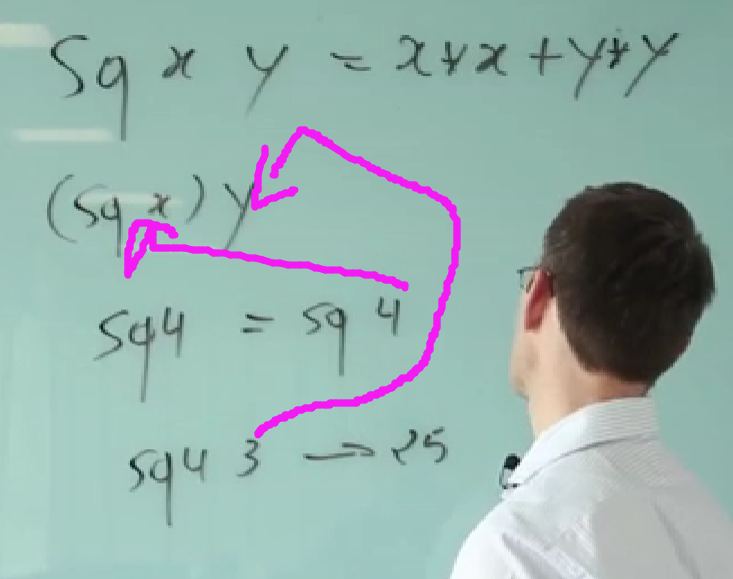 sq x y = x*x + y*y
(sq x) y
sq4 = sq 4
sq4 3 → 25